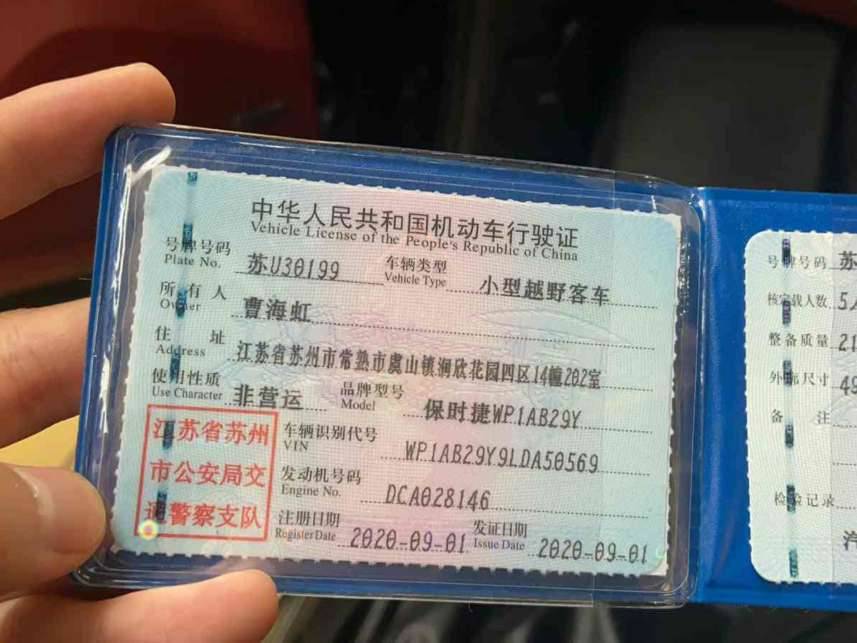 中华人民共和国机动车行驶证
Vehicle License of the People's Republic of China
号牌号码 苏U30199 车辆类型 小型越野客车
Plate No. Vehicle Type
所有人 曹海虹
Owner
住址 江苏省苏州市常熟市虞山镇润欣花园四区14幢202室
Address
使用性质 非营运 品牌型号 保时捷WP1AB29Y
Use Character Model
江苏省苏州
市公安局交
通警察支队
车辆识别代号 WP1AB29Y9LDA50569
VIN
发动机号码 DCA028146
Engine No.
注册日期 2020-09-01 发证日期 2020-09-01
Register Date Issue Date
号牌号码 苏
核定载人数 5人
整备质量 21
外廓尺寸 49
备注
检验记录
汽